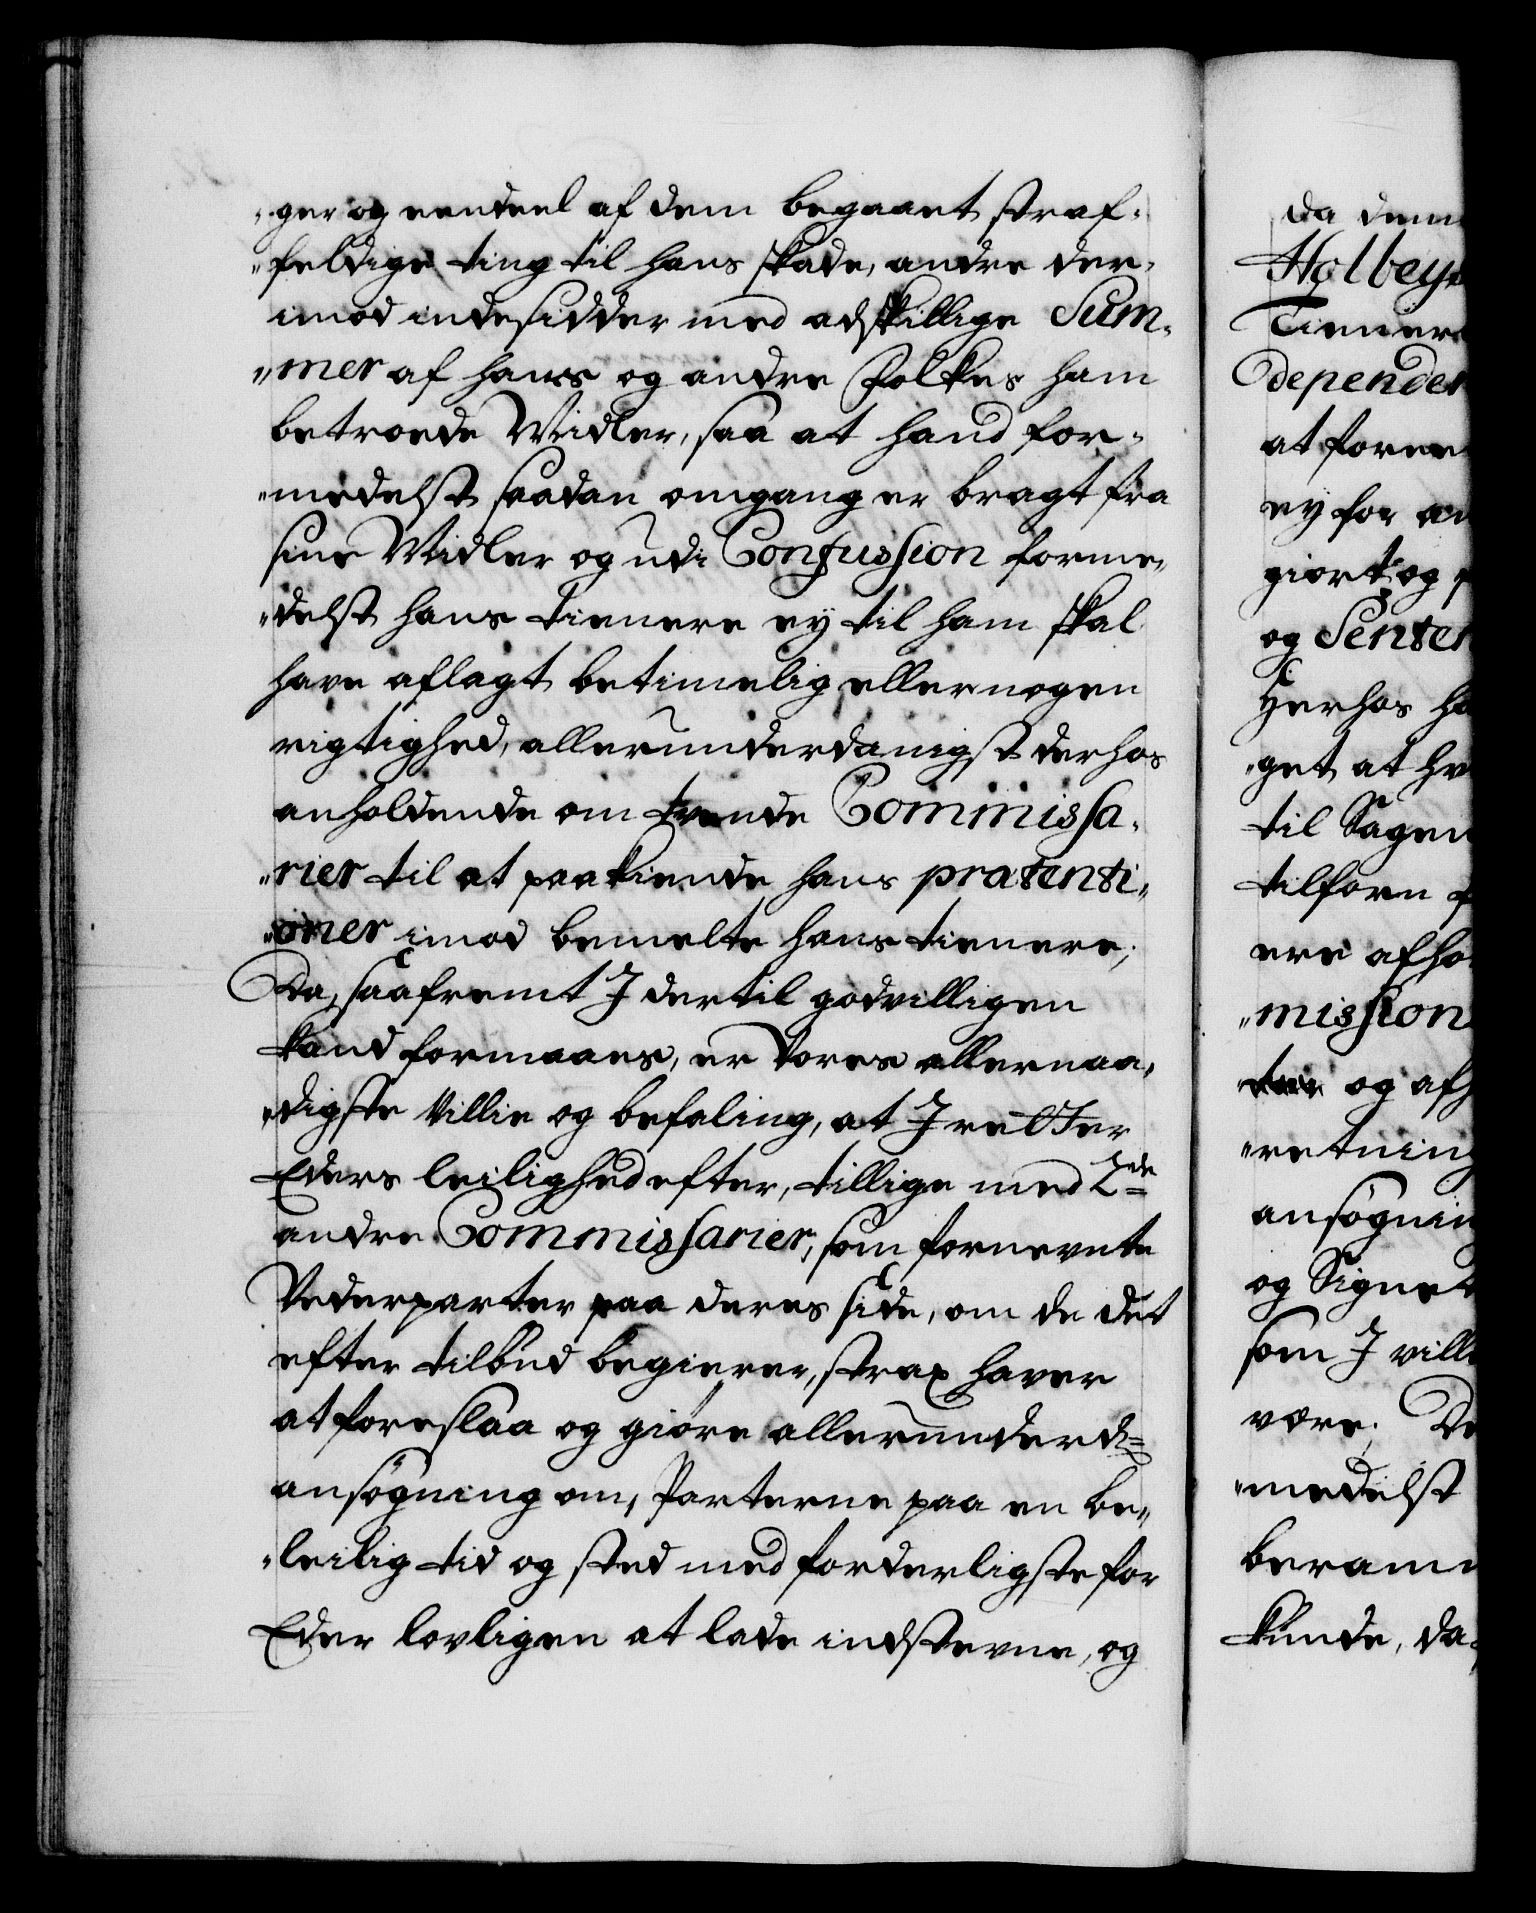 "ger og eendeel af dem begaaet straf-
"feldige ting til hans skade, andre der-
imod indesidder med adskillige Sum-
"mer af hans og andre Folkes ham
betroede Midler, saa at hand for-
"medelst saadan omgang er bragt fra
sine Midler og udi Confussion forme-
"delst hans tienere ey til ham skal
have aflagt betimelig eller nogen
rigtighed, allerunderdanigst derhos
anholdende om trende Commissa-
"rier til at paakiende hans prætenti-
"oner imod bemelte hans tienere;
Da, saafremt I dertil godvilligen
kand formaaes, er Vores allernaa-
"digste Villie og befaling, at I retter
Eders leilighed efter, tillige med 2de
andre Commissarier, som fornevnte
Vederparter paa deres side, om de det
efter tilbud begierer, strax haver
at foreslaa og giøre allerunderd=
ansøgning om, Parterne paa en be-
"leilig tid og sted med forderligste for
Eder lovligen at lade indstevne, og
da dem
Holbeye
Tienere
depender
at foree
ey for an
giort og
og Senten
Herhos ha
"get at hv
til Sagen
tilforn
ere afho
"mission
og afh
"retning
ansøgnin
og Signet
som I ville
være. De
"medelst
beram
kunde, da